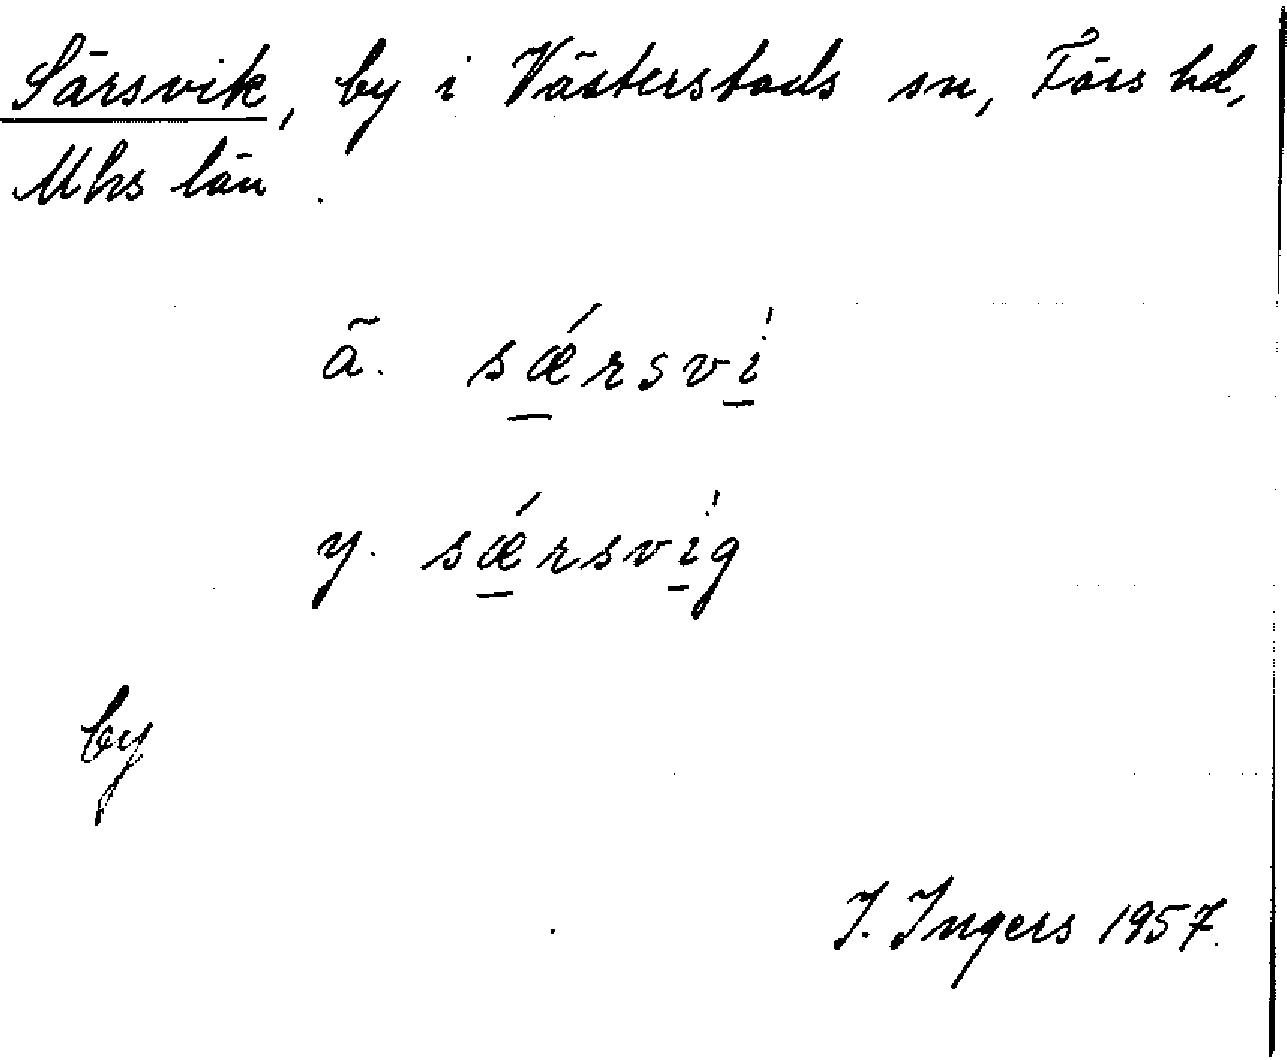 Särsvik, by i Västerstads sn, Färs hd,
Mhs län.
ä. sǽ̱rsvi̱̍
y. sǽ̱rsvi̱̍g
by
I. Ingers 1957.